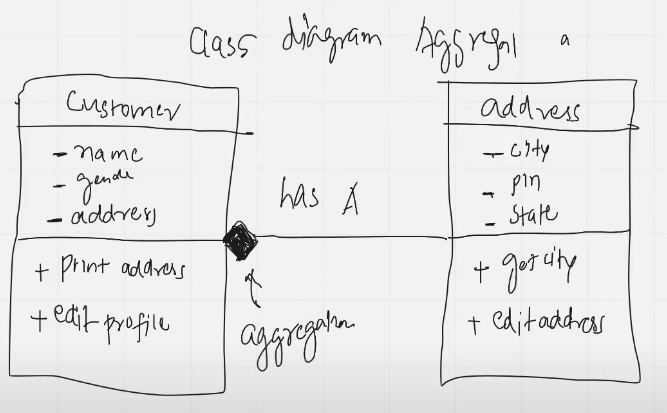 class diagram Aggregat a
Customer
- name
- gende
- address
+ print address
+ edit profile
has A
aggregation
address
- city
- pin
- state
+ get city
+ edit address